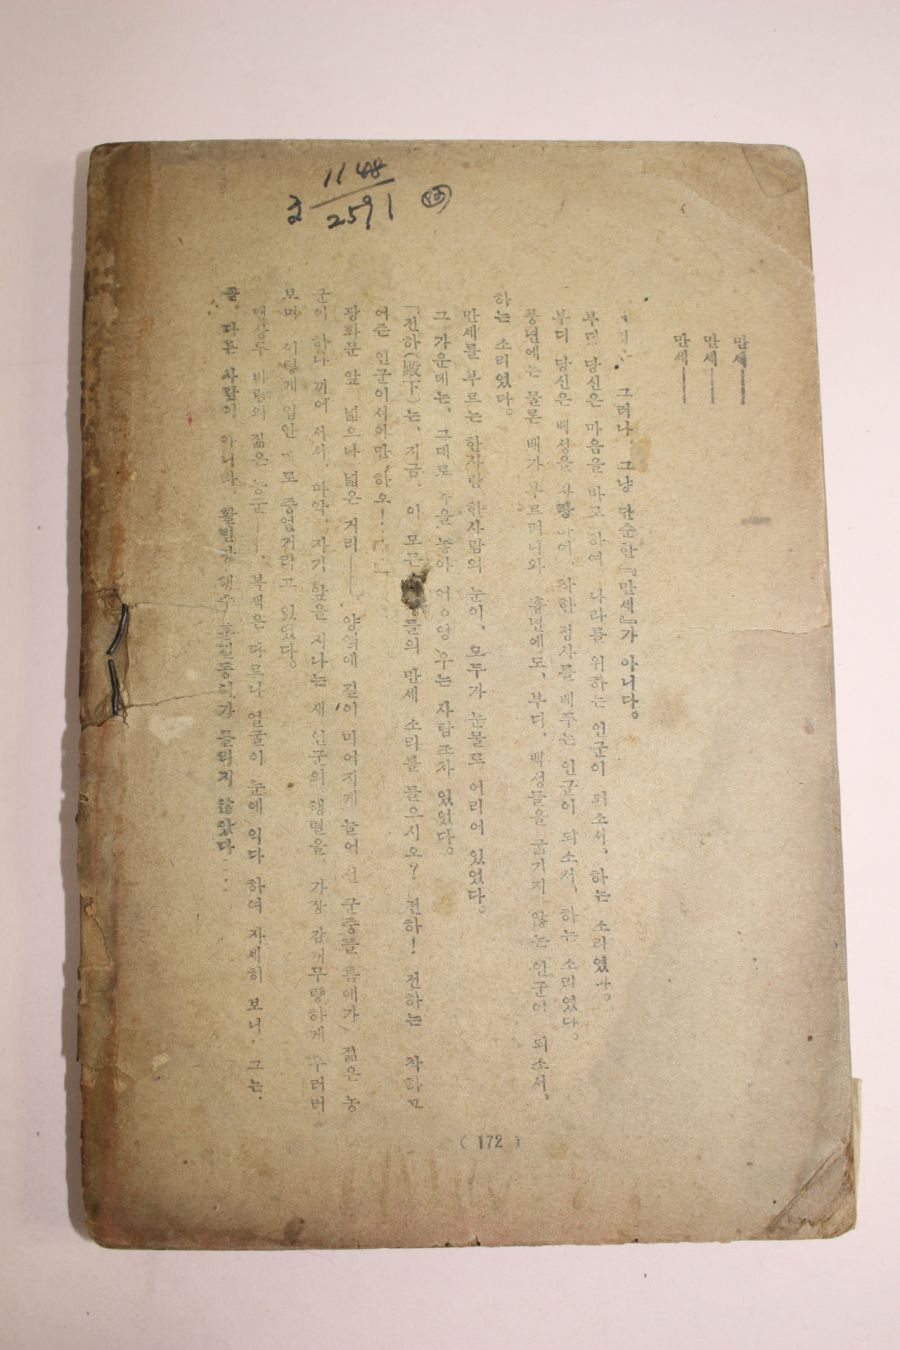 조 1148
2591
만세――
만세――
만세――
그러나, 그냥 단순한『만세』가 아니다.
부디 당신은 마음을 바로 하여, 나라를 위하는 인군이 되소서, 하는 소리였다.
부디 당신은 백성을 사랑하여, 착한 정사를 베푸는 인군이 되소서, 하는 소리였다.
풍년에는 물론 배가 부르려니와, 흉년에도, 부디, 백성들을 굶기지 않는 인군이 되소서,
하는 소리였다.
만세를 부르는 한사람 한사람의 눈이, 모두가 눈물로 어리어 있었다.
그 가운데는, 그대로 목을 놓아 엉엉 우는 사람조차 있었다.
「전하(殿下)는, 지금, 이 모든 들의 만세 소리를 들으시오? 전하! 전하는 착하고
어진 인군이셔야만 하오!…」
광화문 앞 넓으나 넓은 거리―― 양옆에 길이 미어지게 늘어 선 군중들 틈에가 젊은 농
군이 하나 끼어 서서, 마악, 자기 앞을 지나는 새 인군의 행렬을, 가장 감개무량하게 우러러
보며 이렇게 입안 로 중얼거리고 있었다.
맨상투 바람의 젊은 농군――. 복색은 다르나 얼굴이 눈에 익다 하여 자세히 보니, 그는,
곧, 다른 사람이 아니라, 활빈당 행수 홍길동이가 틀리지 않았다…
( 172 )